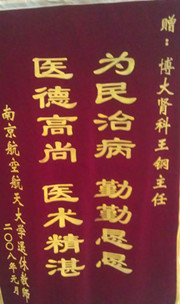 赠：博大肾科王钢主任
为民治病 勤勤恳恳
医德高尚 医术精湛
南京航空航天大学退休教师
二〇〇八年元月